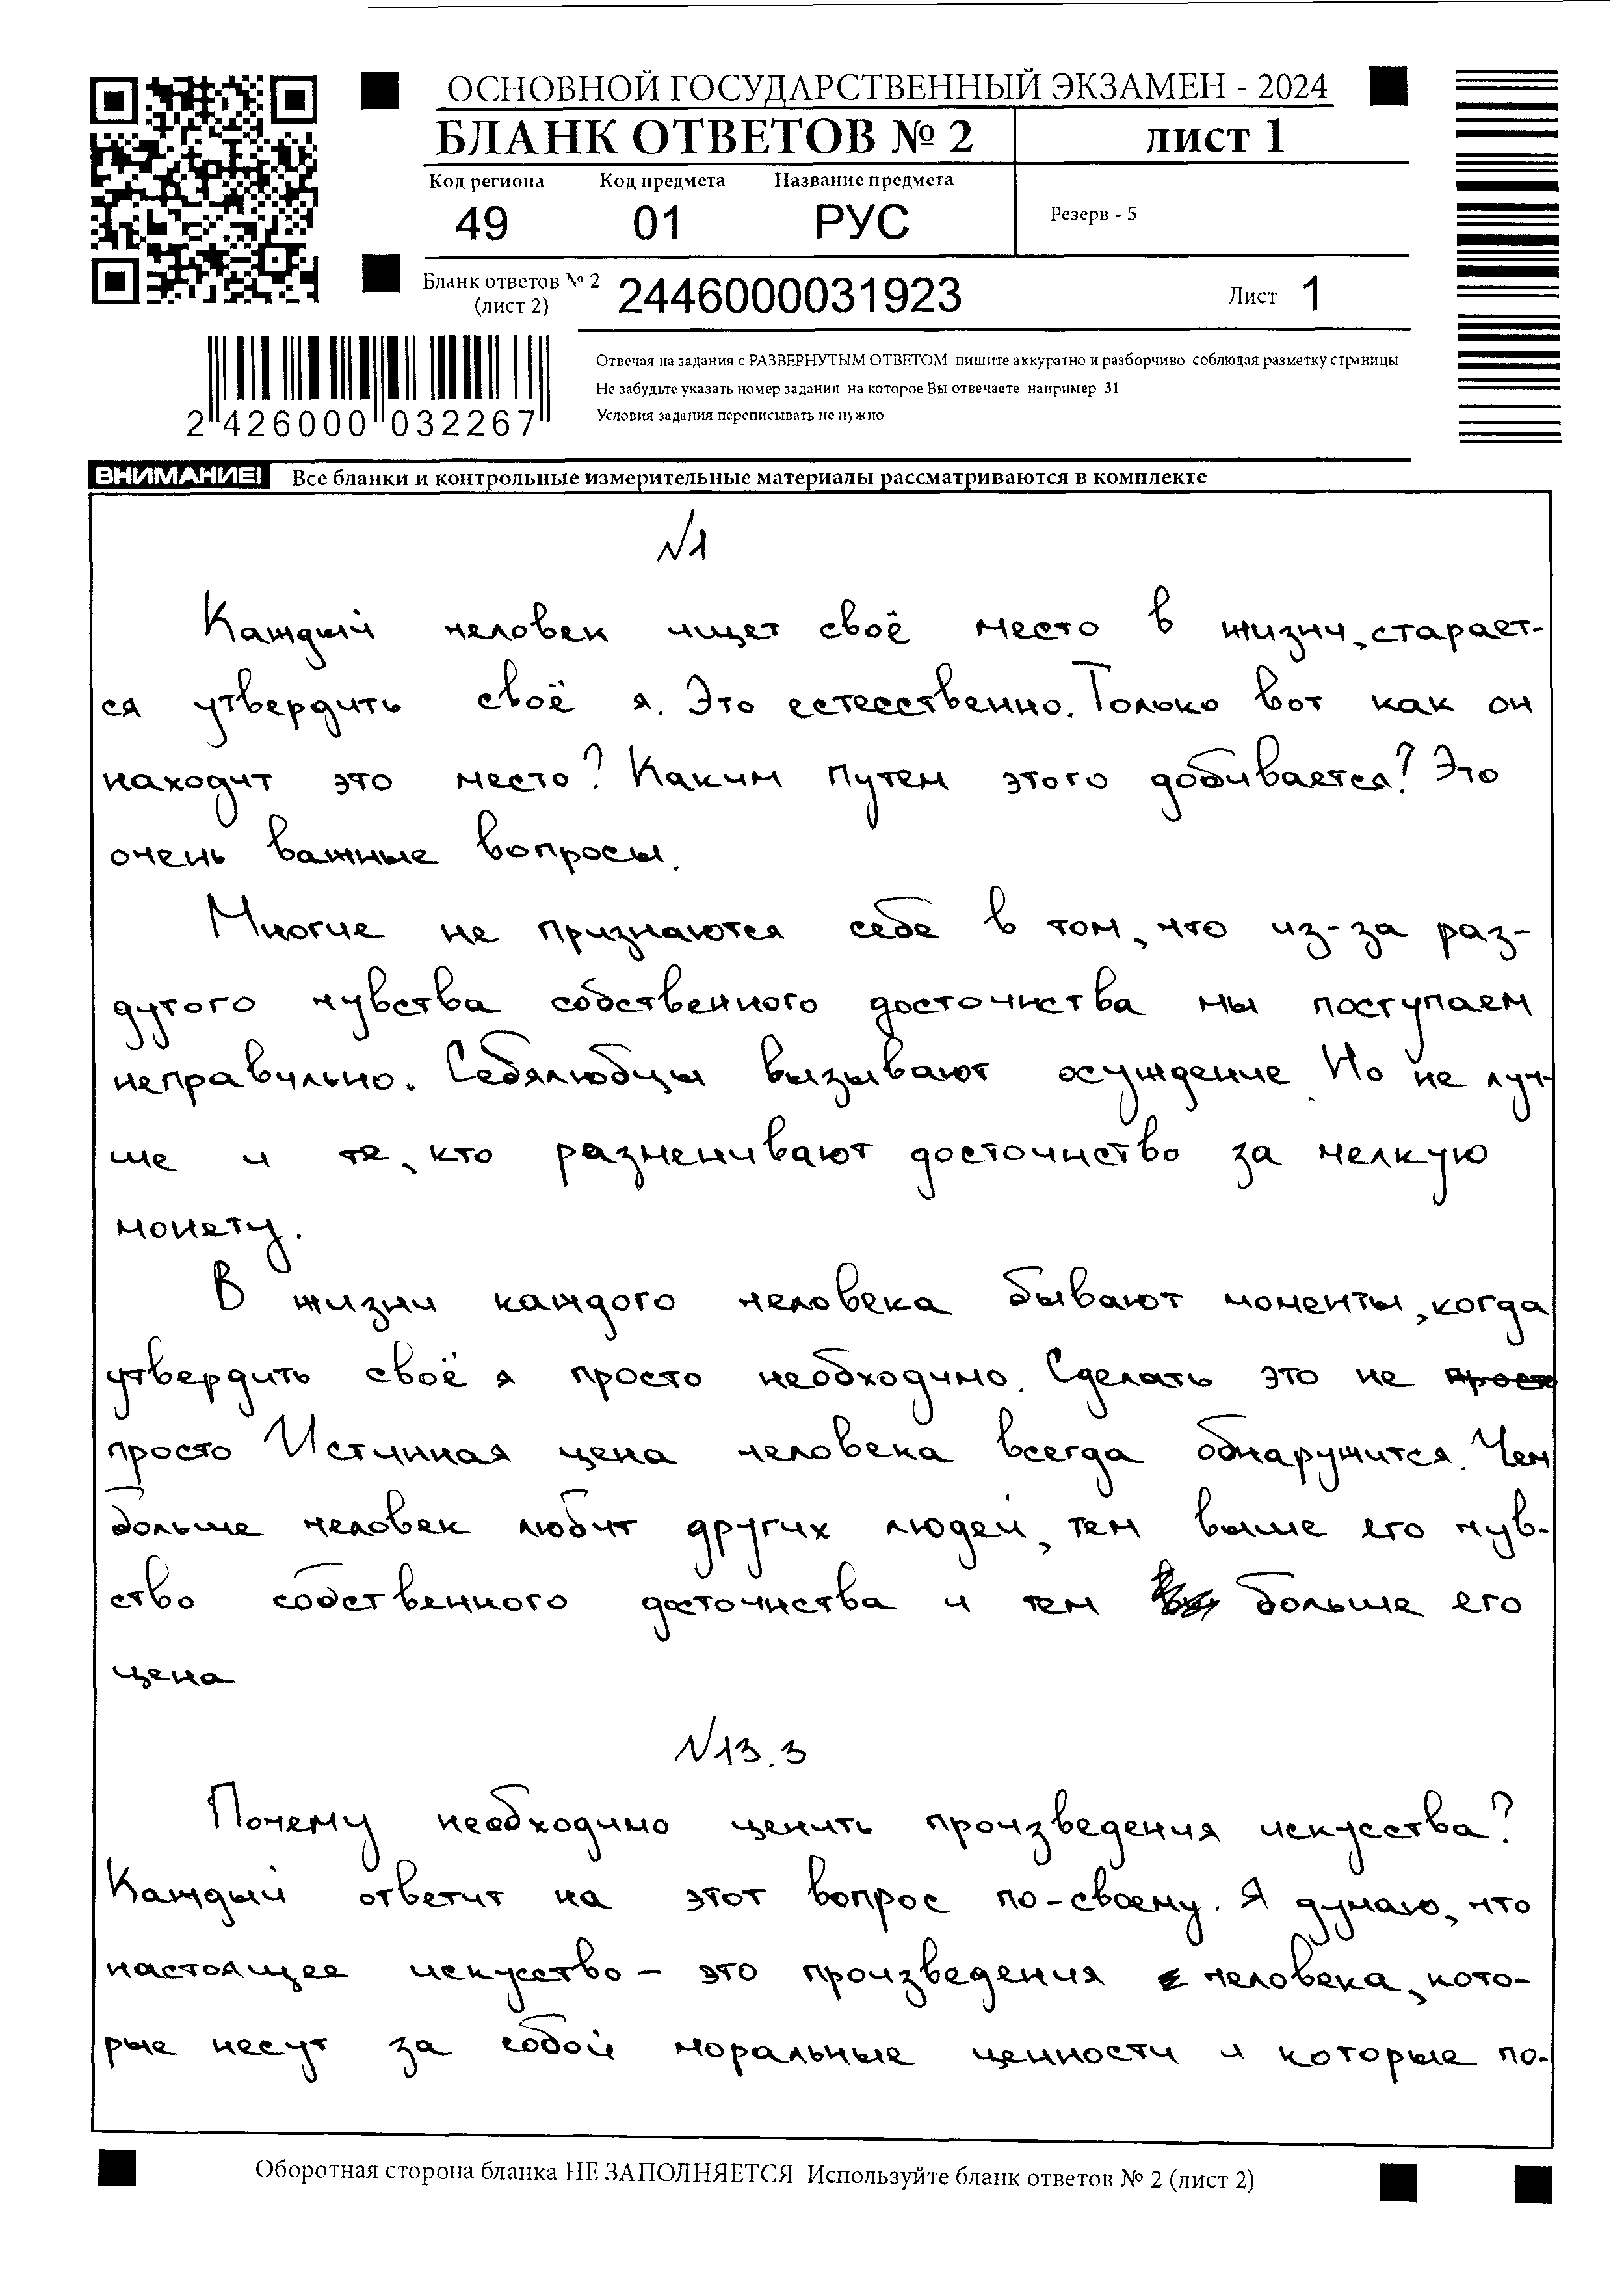 ОСНОВНОЙ ГОСУДАРСТВЕННЫЙ ЭКЗАМЕН - 2024
БЛАНК ОТВЕТОВ № 2 лист 1
Код региона Код предмета Название предмета
49 01 РУС Резерв - 5
Бланк ответов № 2 (лист 2) 2446000031923 Лист 1
Отвечая на задания с РАЗВЕРНУТЫМ ОТВЕТОМ пишите аккуратно и разборчиво соблюдая разметку страницы
Не забудьте указать номер задания на которое Вы отвечаете например 31
Условия задания переписывать не нужно
2 426000 032267
ВНИМАНИЕ! Все бланки и контрольные измерительные материалы рассматриваются в комплекте
№1
Каждый человек ищет своё место в жизни, старает-
ся утвердить своё я. Это естесственно. Только вот как он
находит это место? Каким путем этого добивается? Это
очень важные вопросы.
Многие не признаются себе в том, что из-за раз-
дутого чувства собственного достоинства мы поступаем
неправильно. Себялюбцы вызывают осуждение. Но не луч-
ше и те, кто разменивают достоинство за мелкую
монету.
В жизни каждого человека бывают моменты, когда
утвердить своё я просто необходимо. Сделать это не просто
просто Истинная цена человека всегда обнаружится. Чем
больше человек любит других людей, тем выше его чув-
ство собственного достоинства и тем больше его
цена
№13.3
Почему необходимо ценить произведения искусства?
Каждый ответит на этот вопрос по-своему. Я думаю, что
настоящее искусство – это произведения человека, кото-
рые несут за собой моральные ценности и которые по-
Оборотная сторона бланка НЕ ЗАПОЛНЯЕТСЯ Используйте бланк ответов № 2 (лист 2)